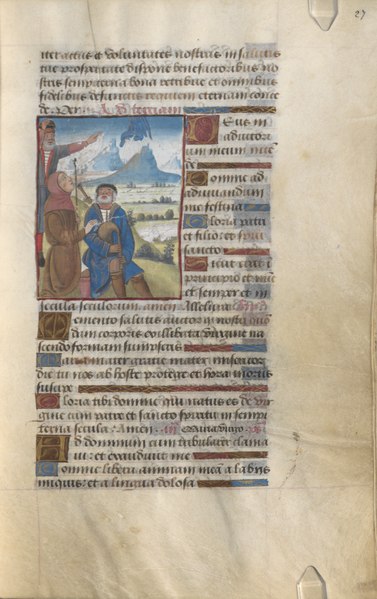 27
iter actus et voluntates nostras in salutis
tue prosperitate dispone benefactoribus no
stris sempiterna bona retribue et omnibus
fidelibus defunctis requiem eternam conce
de Amen Ad terciam
Deus in
adiutori
um meum inte
de
Domine ad
adiuvandum
me festina
Gloria patri
et filio et spiritui
sancto
Sicut erat in
principio et nunc
et semper et in
secula seculorum amen
Memento salutis auctor quod nostri quon
dam corporis ex illibata virgine na
scendo formam sumpseris
Maria mater gratie mater misericor
die tu nos ab hoste protege et hora mortis
suscipe
Gloria tibi domine qui natus es de vir
gine cum patre et sancto spiritu in sempi
terna secula Amen
Ad dominum cum tribularer clama
vi et exaudivit me
Domine libera animam meam a labiis
iniquis et a lingua dolosa